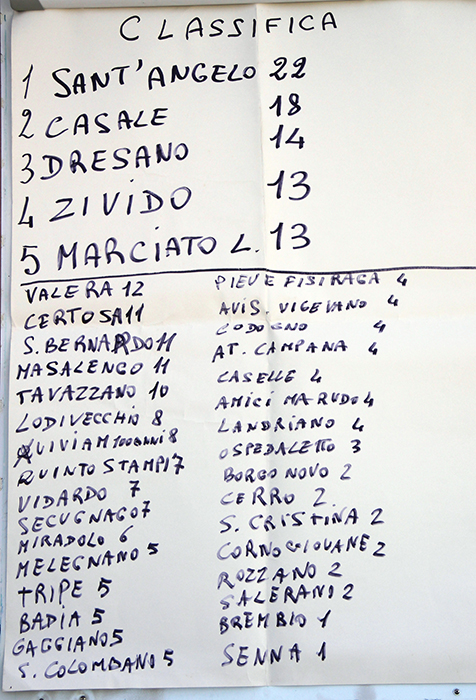 CLASSIFICA
1 SANT'ANGELO 22
2 CASALE 18
3 DRESANO 14
4 ZIVIDO 13
5 MARCIATO L. 13
VALERA 12
CERTOSA 11
S. BERNARDO 11
MASALENGO 11
TAVAZZANO 10
LODIVECCHIO 8
VIVIAM 100 ANNI 8
QUINTO STAMPI 7
VIDARDO 7
SECUGNAGO 7
MIRADOLO 6
MELEGNANO 5
TRIPE 5
BADIA 5
GAGGIANO 5
S. COLOMBANO 5
PIEVE FISIRAGA 4
AVIS. VIGEVANO 4
CODOGNO 4
AT. CAMPANA 4
CASELLE 4
AMICI MARUDO 4
LANDRIANO 4
OSPEDALETTO 3
BORGO NOVO 2
CERRO 2
S. CRISTINA 2
CORNOGIOVANE 2
ROZZANO 2
SALERANO 2
BREMBIO 1
SENNA 1